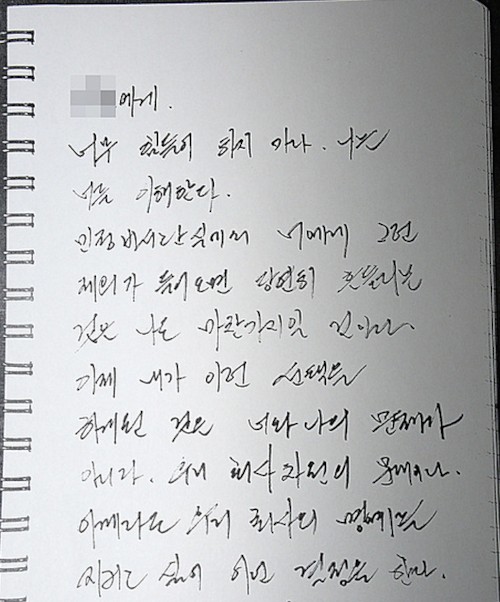 에게.
너무 힘들어 하지 마라. 나는
너를 이해한다.
민정비서관실에서 너에게 그런
제의가 들어오면 당연히 흔들리는
것은 나도 마찬가지일 것이다.
이제 내가 이런 선택을
하게된 것은 너와 나의 문제가
아니다. 우리 회사 차원의 문제이나.
이제라도 우리 회사의 명예를
지키고 싶어 이런 결정을 한다.